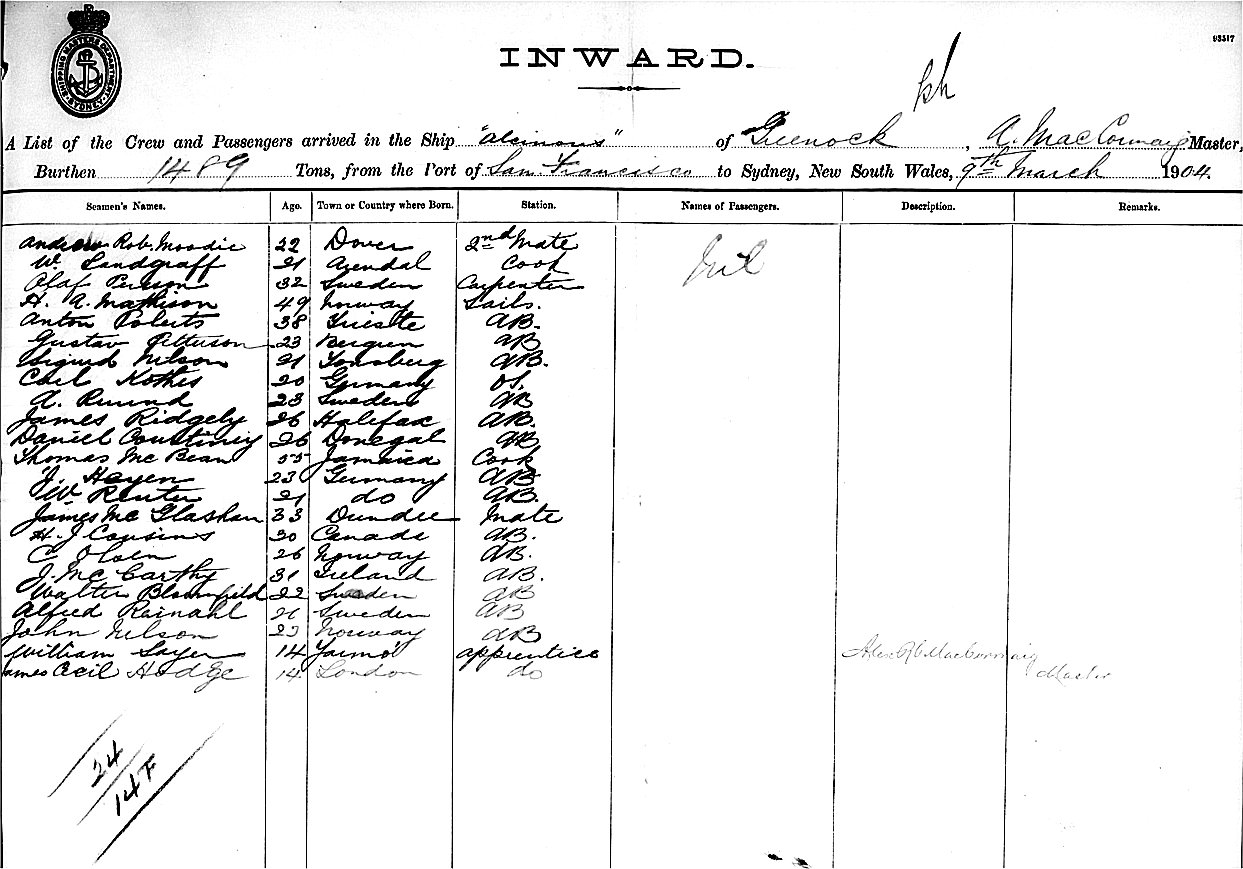 SHIPPING MASTERS DEPARTMENT SYDNEY
INWARD.
93517
A List of the Crew and Passengers arrived in the Ship "Alcinous" of Greenock, A. MacCormaig Master,
Burthen 1489 Tons, from the Port of San Francisco to Sydney, New South Wales, 9th March 1904.
Seamen's Names. Age. Town or Country where Born. Station. Names of Passengers. Description. Remarks.
Andrew Rob. Moodie 22 Dover 2nd Mate Nil
W. Landgraff 21 Arendal Cook
Olaf Persson 32 Sweden Carpenter
H. A. Mathison 49 Norway Sails.
Anton Roberts 38 Trieste AB.
Gustav Petterson 23 Bergen AB
Sigurd Nilson 21 Tonsberg AB.
Carl Kothes 20 Germany OS.
A. Ruund 23 Sweden AB
James Ridgely 26 Halifax AB.
Daniel 26 Donegal AB
Thomas McBean 55 Jamaica Cook
J. Heyen 23 Germany AB
W Renter 21 do AB.
James McGlashan 33 Dundee Mate
H. J. Cousins 30 Canada AB.
C Olsen 26 Norway AB.
J. McCarthy 31 Ireland AB.
Walter Blomfield 22 Sweden AB
Alfred Rainahl 21 Sweden AB
John Nelson 23 Norway AB
William Sayer 14 Yarmo' apprentice Alex MacCormaig
James Cecil Hodge 14. London do Master
24
14 F